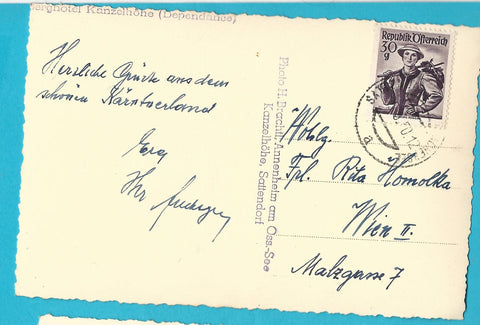 Berghotel Kanzelhöhe (Dependance)
Herzliche Grüße aus dem
schönen Kärntnerland
Ihr
Photo H. Brachtl, Annenheim am Oss.-See
Kanzelhöhe, Sattendorf
Republik Österreich
30
g
Wohlg.
Frl. Rita Homolka
Wien II.
Malzgasse 7